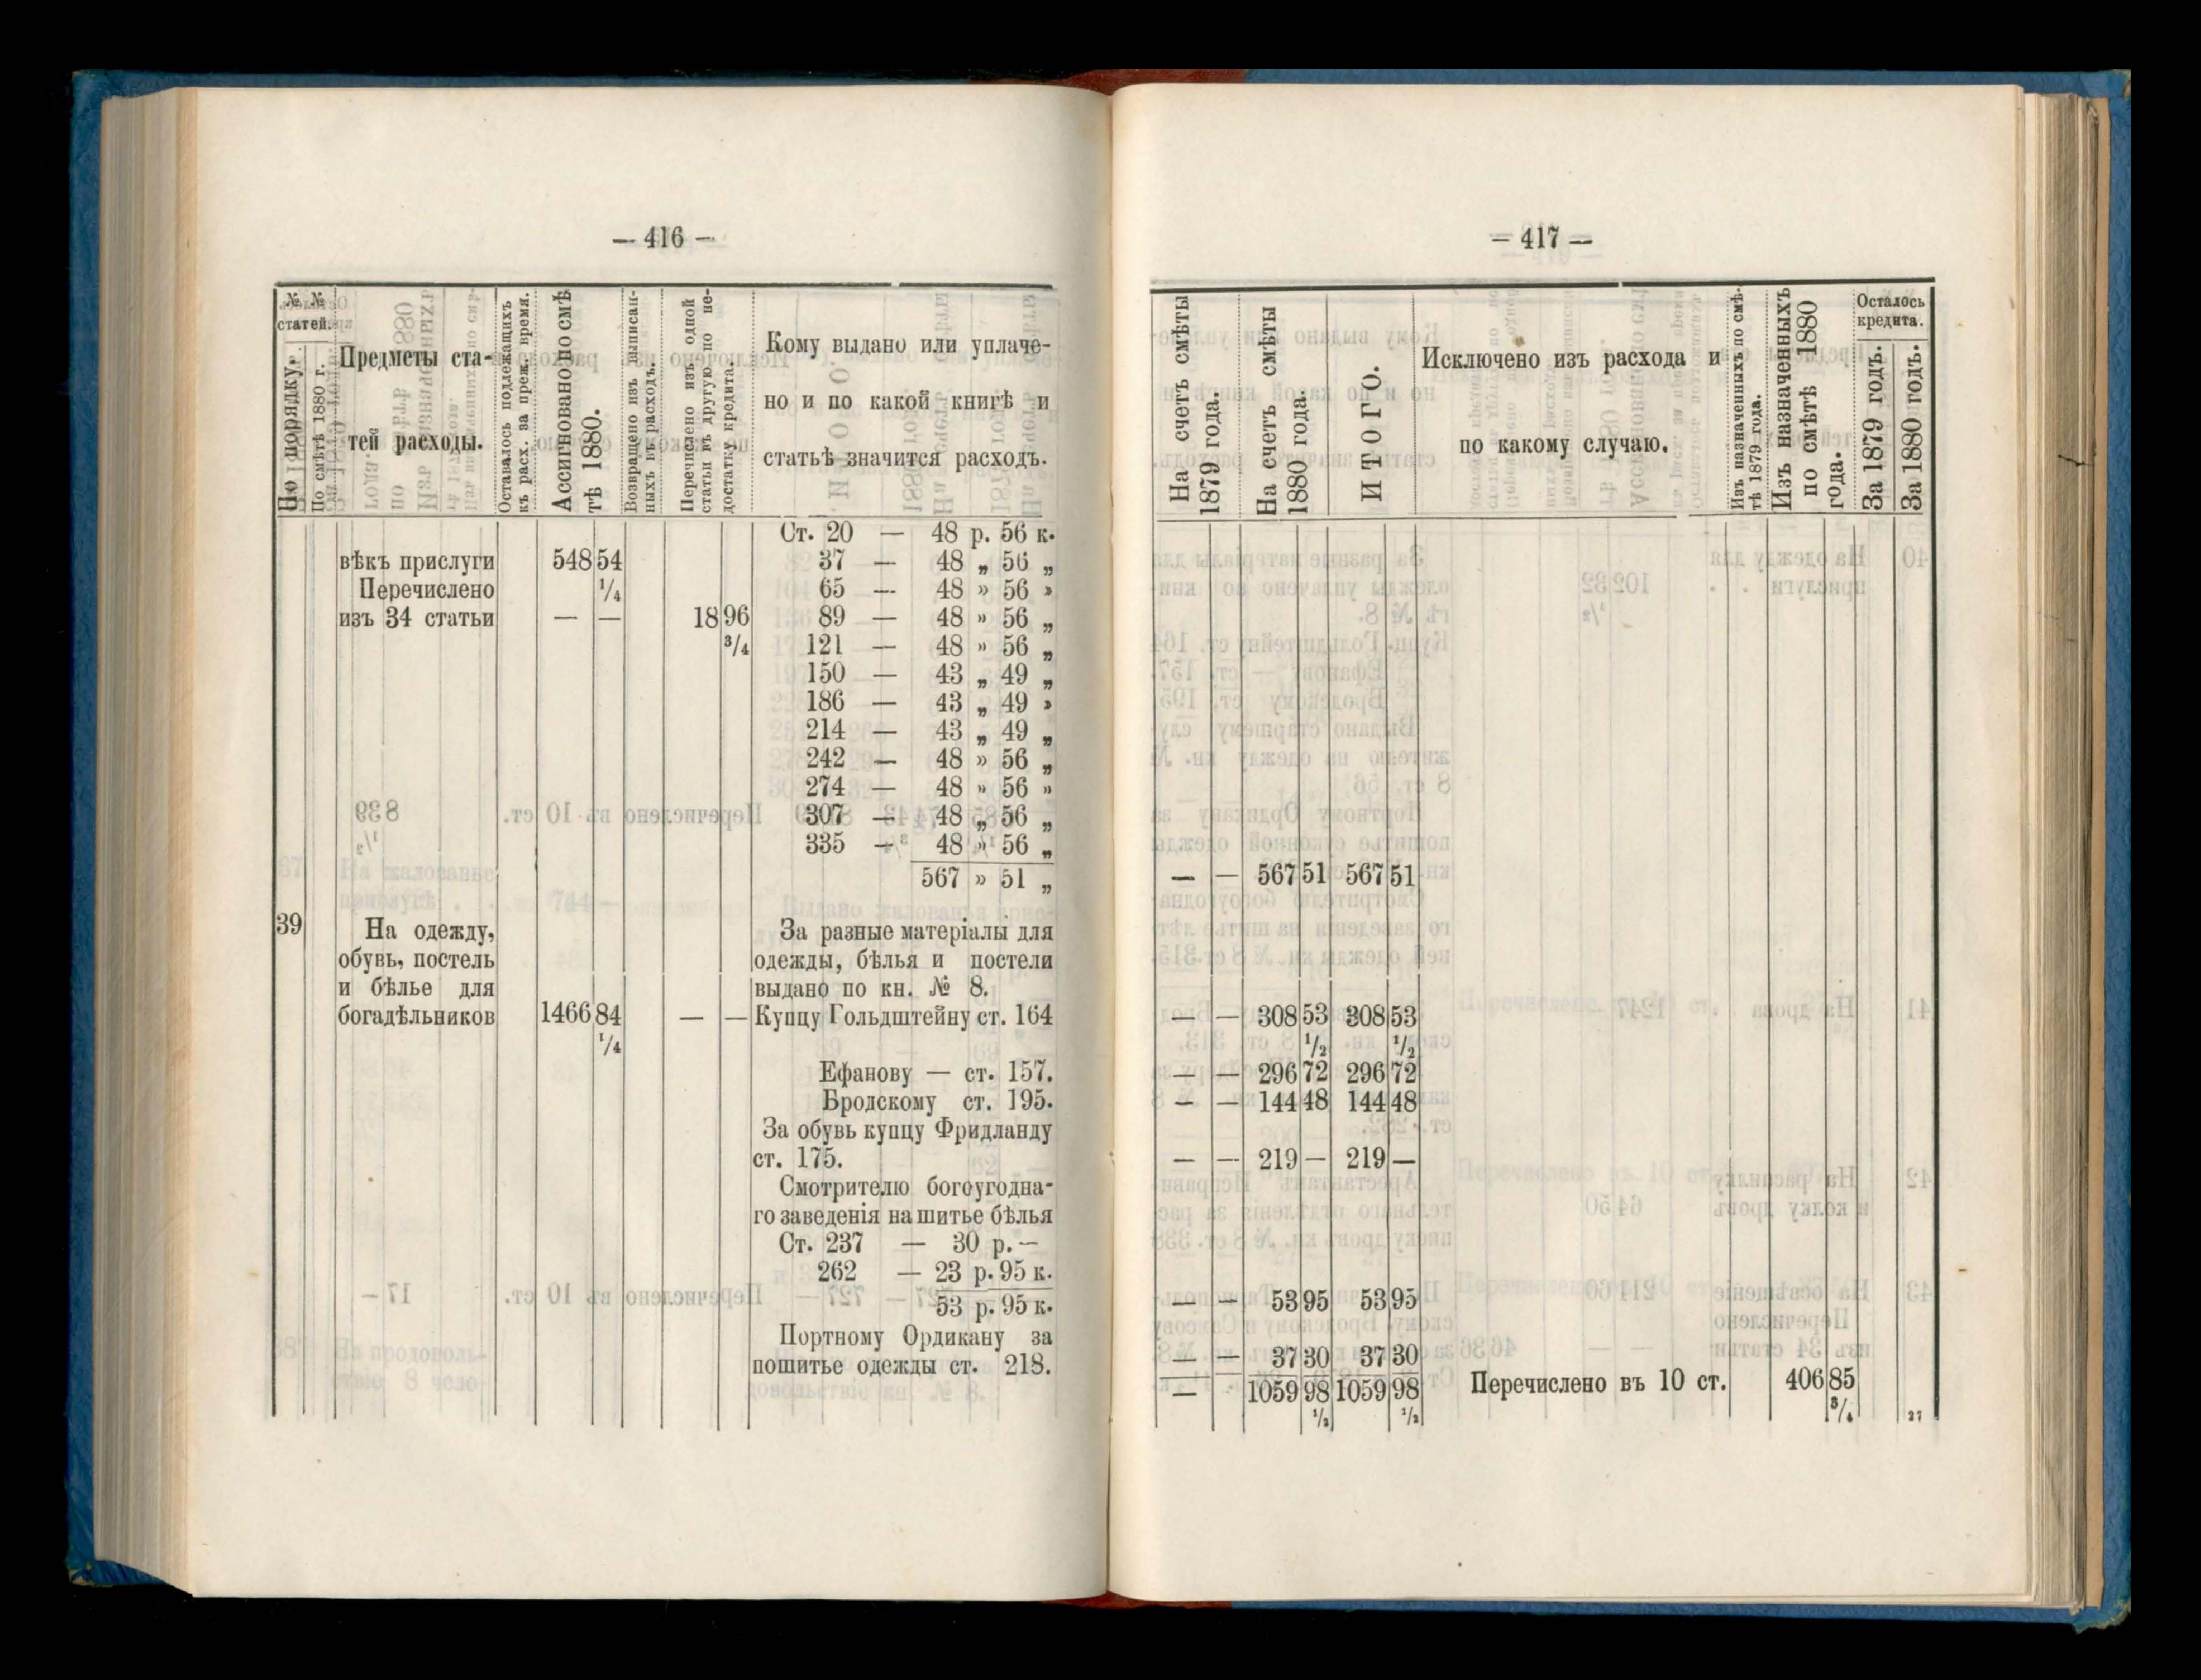 — 416 —
№ №
статей.
По порядку.
По смѣтѣ 1880 г.
Предметы ста-
тей расходы.
Оставалось подлежащихъ
къ расх. за преж. время.
Ассигновано по смѣ
тѣ 1880.
Возвращено изъ выписан-
ныхъ въ расходъ.
Перечислено изъ одной
статьи въ другую по не-
достатку кредита.
Кому выдано или уплаче-
но и по какой книгѣ и
статьѣ значится расходъ.
Ст. 20 — 48 р. 56 к.
вѣкъ прислуги 548 54 37 — 48 „ 56 „
Перечислено 1/4 65 — 48 » 56 »
изъ 34 статьи — — 18 96 89 — 48 » 56 „
3/4 121 — 48 » 56 „
150 — 43 „ 49 „
186 — 43 „ 49 »
214 — 43 „ 49 „
242 — 48 » 56 „
274 — 48 » 56 »
307 — 48 „ 56 „
335 — 48 » 56 „
567 » 51 „
39 На одежду, За разные матеріалы для
обувь, постель одежды, бѣлья и постели
и бѣлье для выдано по кн. № 8.
богадѣльниковъ 1466 84 — — Купцу Гольдштейну ст. 164
1/4
Ефанову — ст. 157.
Бродскому ст. 195.
За обувь купцу Фридланду
ст. 175.
Смотрителю богоугодна-
го заведенія на шитье бѣлья
Ст. 237 — 30 р. —
262 — 23 р. 95 к.
53 р. 95 к.
Портному Ордикану за
пошитье одежды ст. 218.
— 417 —
На счетъ смѣты
1879 года.
На счетъ смѣты
1880 года.
ИТОГО.
Исключено изъ расхода и
по какому случаю.
Изъ назначенныхъ по смѣ-
тѣ 1879 года.
Изъ назначенныхъ
по смѣтѣ 1880
года.
Осталось
кредита.
За 1879 годъ.
За 1880 годъ.
— — 567 51 567 51
— — 308 53 308 53
1/2 1/2
— — 296 72 296 72
— — 144 48 144 48
— — 219 — 219 —
— — 53 95 53 95
— — 37 30 37 30
— 1059 98 1059 98 Перечислено въ 10 ст. 406 85
1/2 1/2 3/4 27